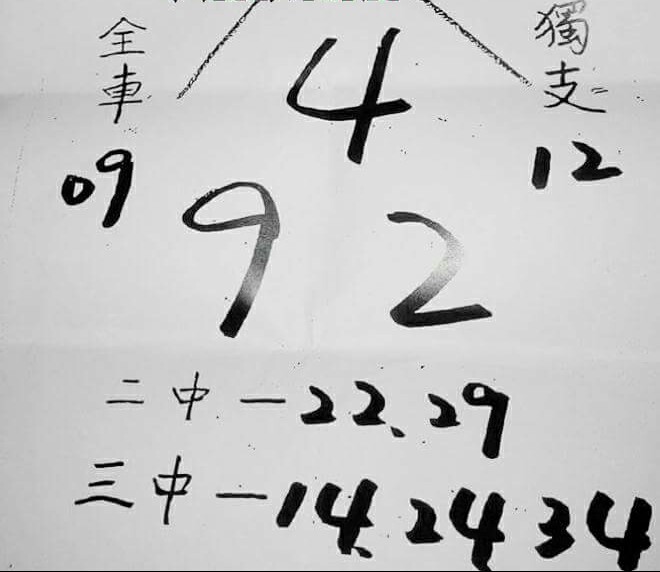 全車
獨支
4
09
12
9 2
二中一22、29
三中一14、24 34